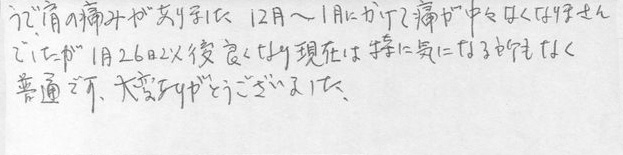 うで、肩の痛みがありました 12月〜1月にかけて痛が中々なくなりません
でしたが 1月26日以後良くなり現在は特に気になる所もなく
普通です、大変ありがとうございました、